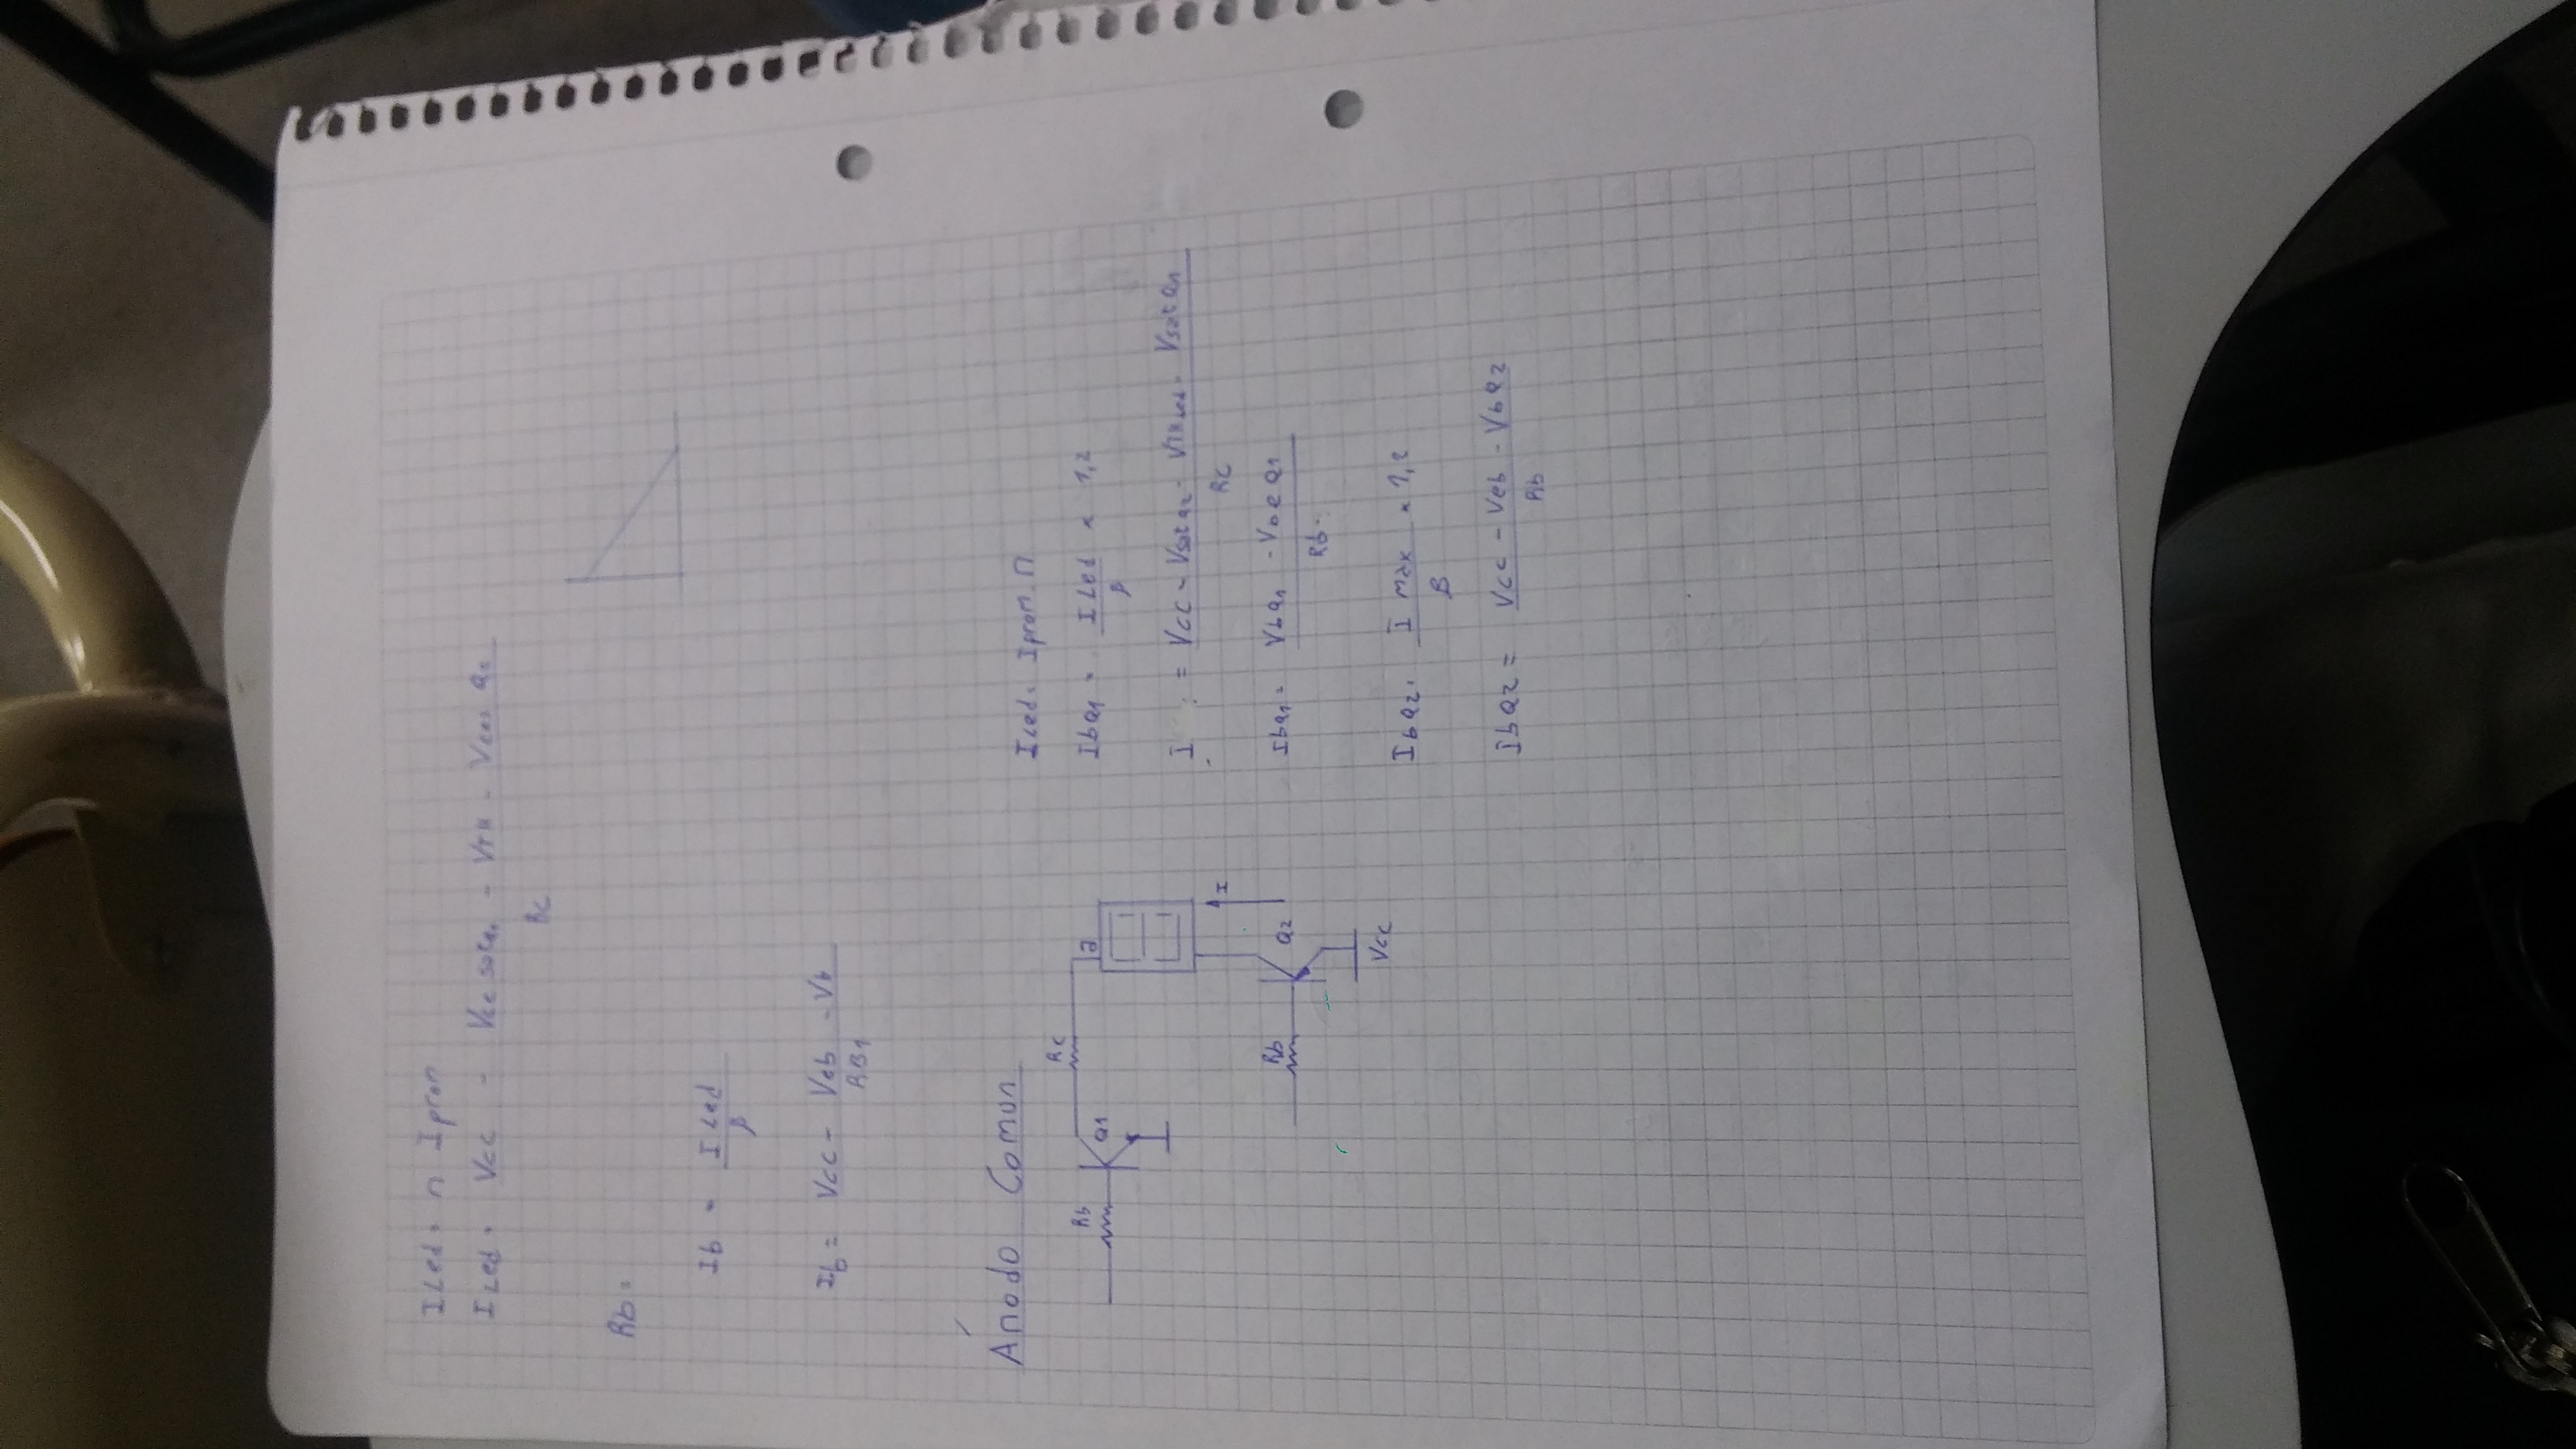 I Led = n Iprom
I Led = Vcc - Vce sat Q1 - VTH -
Rc
Rb =
Ib = I Led
β
Ib = Vcc - Veb - Vb
RB1
Ánodo Comun
Rb
Q1
Rc
a
I
Rb
Q2
Vcc
I Led = Iprom . n
IbQ1 = I Led × 1,2
β
I = Vcc - Vsat Q2 - VTH Led - Vsat Q1
Rc
IbQ1 = VbQ1 - Vbe Q1
Rb
IbQ2 = I max × 1,2
β
IbQ2 = Vcc - Veb - VbQ2
Rb